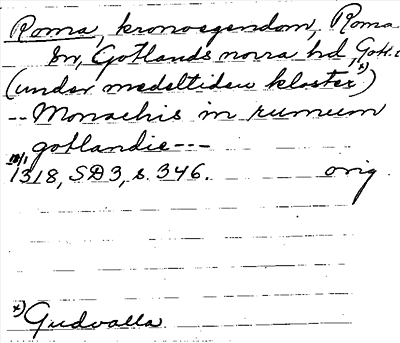 Roma, kronoegendom, Roma
sn, Gotlands norra hd, Gotl. l
(under medeltiden kloster x))
-- Monachis in rumum
gotlandie ---
18/1
1318, SD3, s. 346. orig.
x) Gudvalla